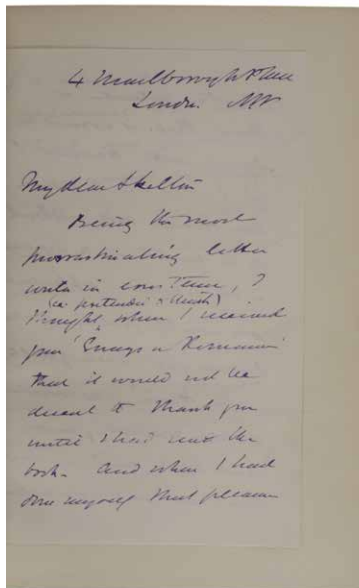 4 Marlborough Place
London NW
My dear Skelton
Being the most
procrastinating letter
writer in existence, I
thought, when I received
your 'Essays in Romance'
that it would not be
decent to thank you
until I had read the
book. And when I had
done myself that pleasure